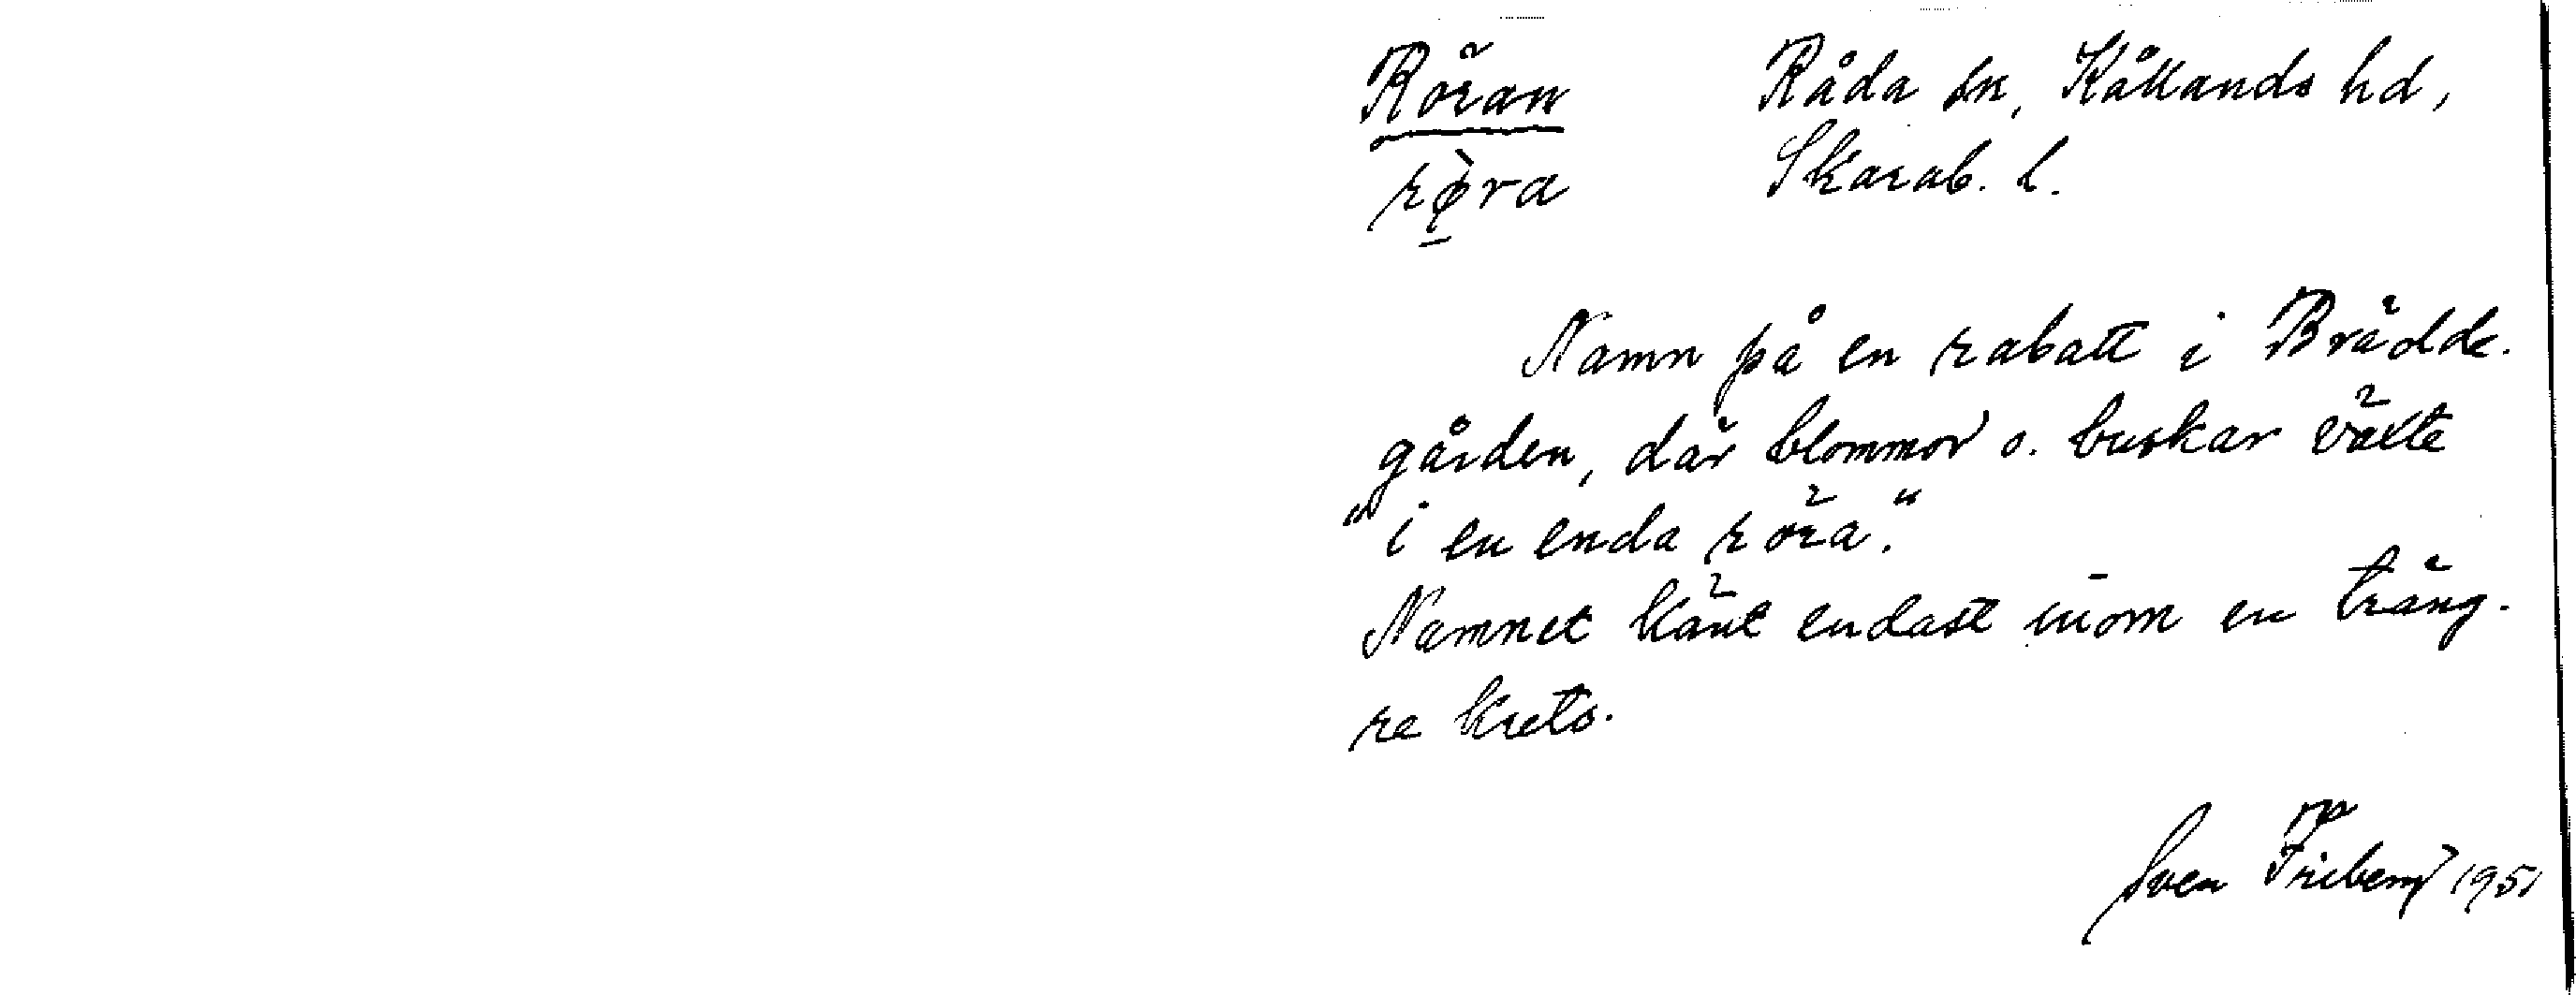 Röran Råda sn, Kållands hd,
rø̀ra Skarab. l.
Namn på en rabatt i Brädde-
gården, där blommor o. buskar växte
"i en enda röra."
Namnet känt endast inom en träng-
re krets.
Sven Friberg 1951